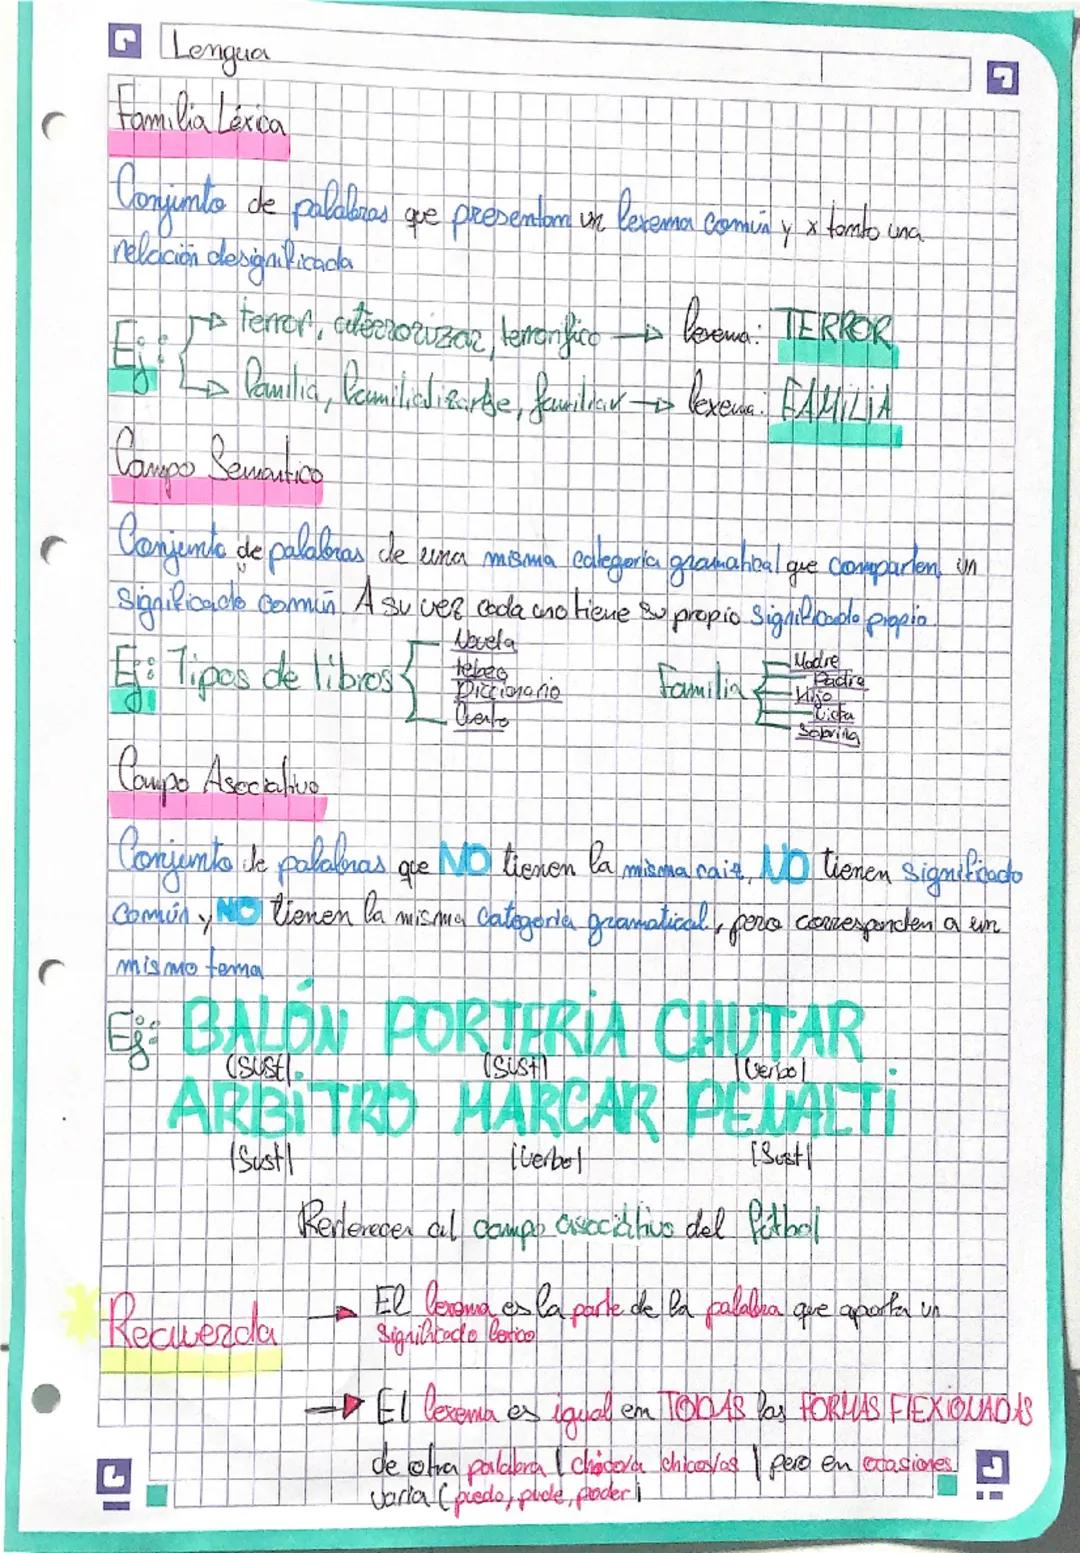 Lengua
Familia Léxica
Conjunto de palabras que presentan un lexema común y x tanto una
relación de significada
Ej: terror, aterrorizar, terrorífico → lexema: TERROR
familia, familializarse, familiar → lexema: FAMILIA
Campo Semantico
Conjunto de palabras de una misma categoria gramatical que comparten un
significado común. A su vez cada uno tiene su propio significado propio.
Ej: Tipos de libros
Novela
tebeo
Diccionario
Cuento
Familia
Madre
Padre
Hijo
Sobrina
Campo Asociativo
Conjunto de palabras que NO tienen la misma raiz, NO tienen significado
común y NO tienen la misma categoria gramatical, pero corresponden a un
mismo tema
Ej: BALÓN PORTERÍA CHUTAR
(Sust). (Sust) (Verbo)
ARBITRO MARCAR PENALTI
(Sust) (Verbo) (Sust)
al campo asociativo del fútbol
Recuerda → El lexema es la parte de la palabra que aporta un
significado lexico
→ El lexema es igual en TODAS las FORMAS FLEXIONADAS
de otra palabra (chico/a chicos/as) pero en ocasiones
varia (puedo, pude, poder)